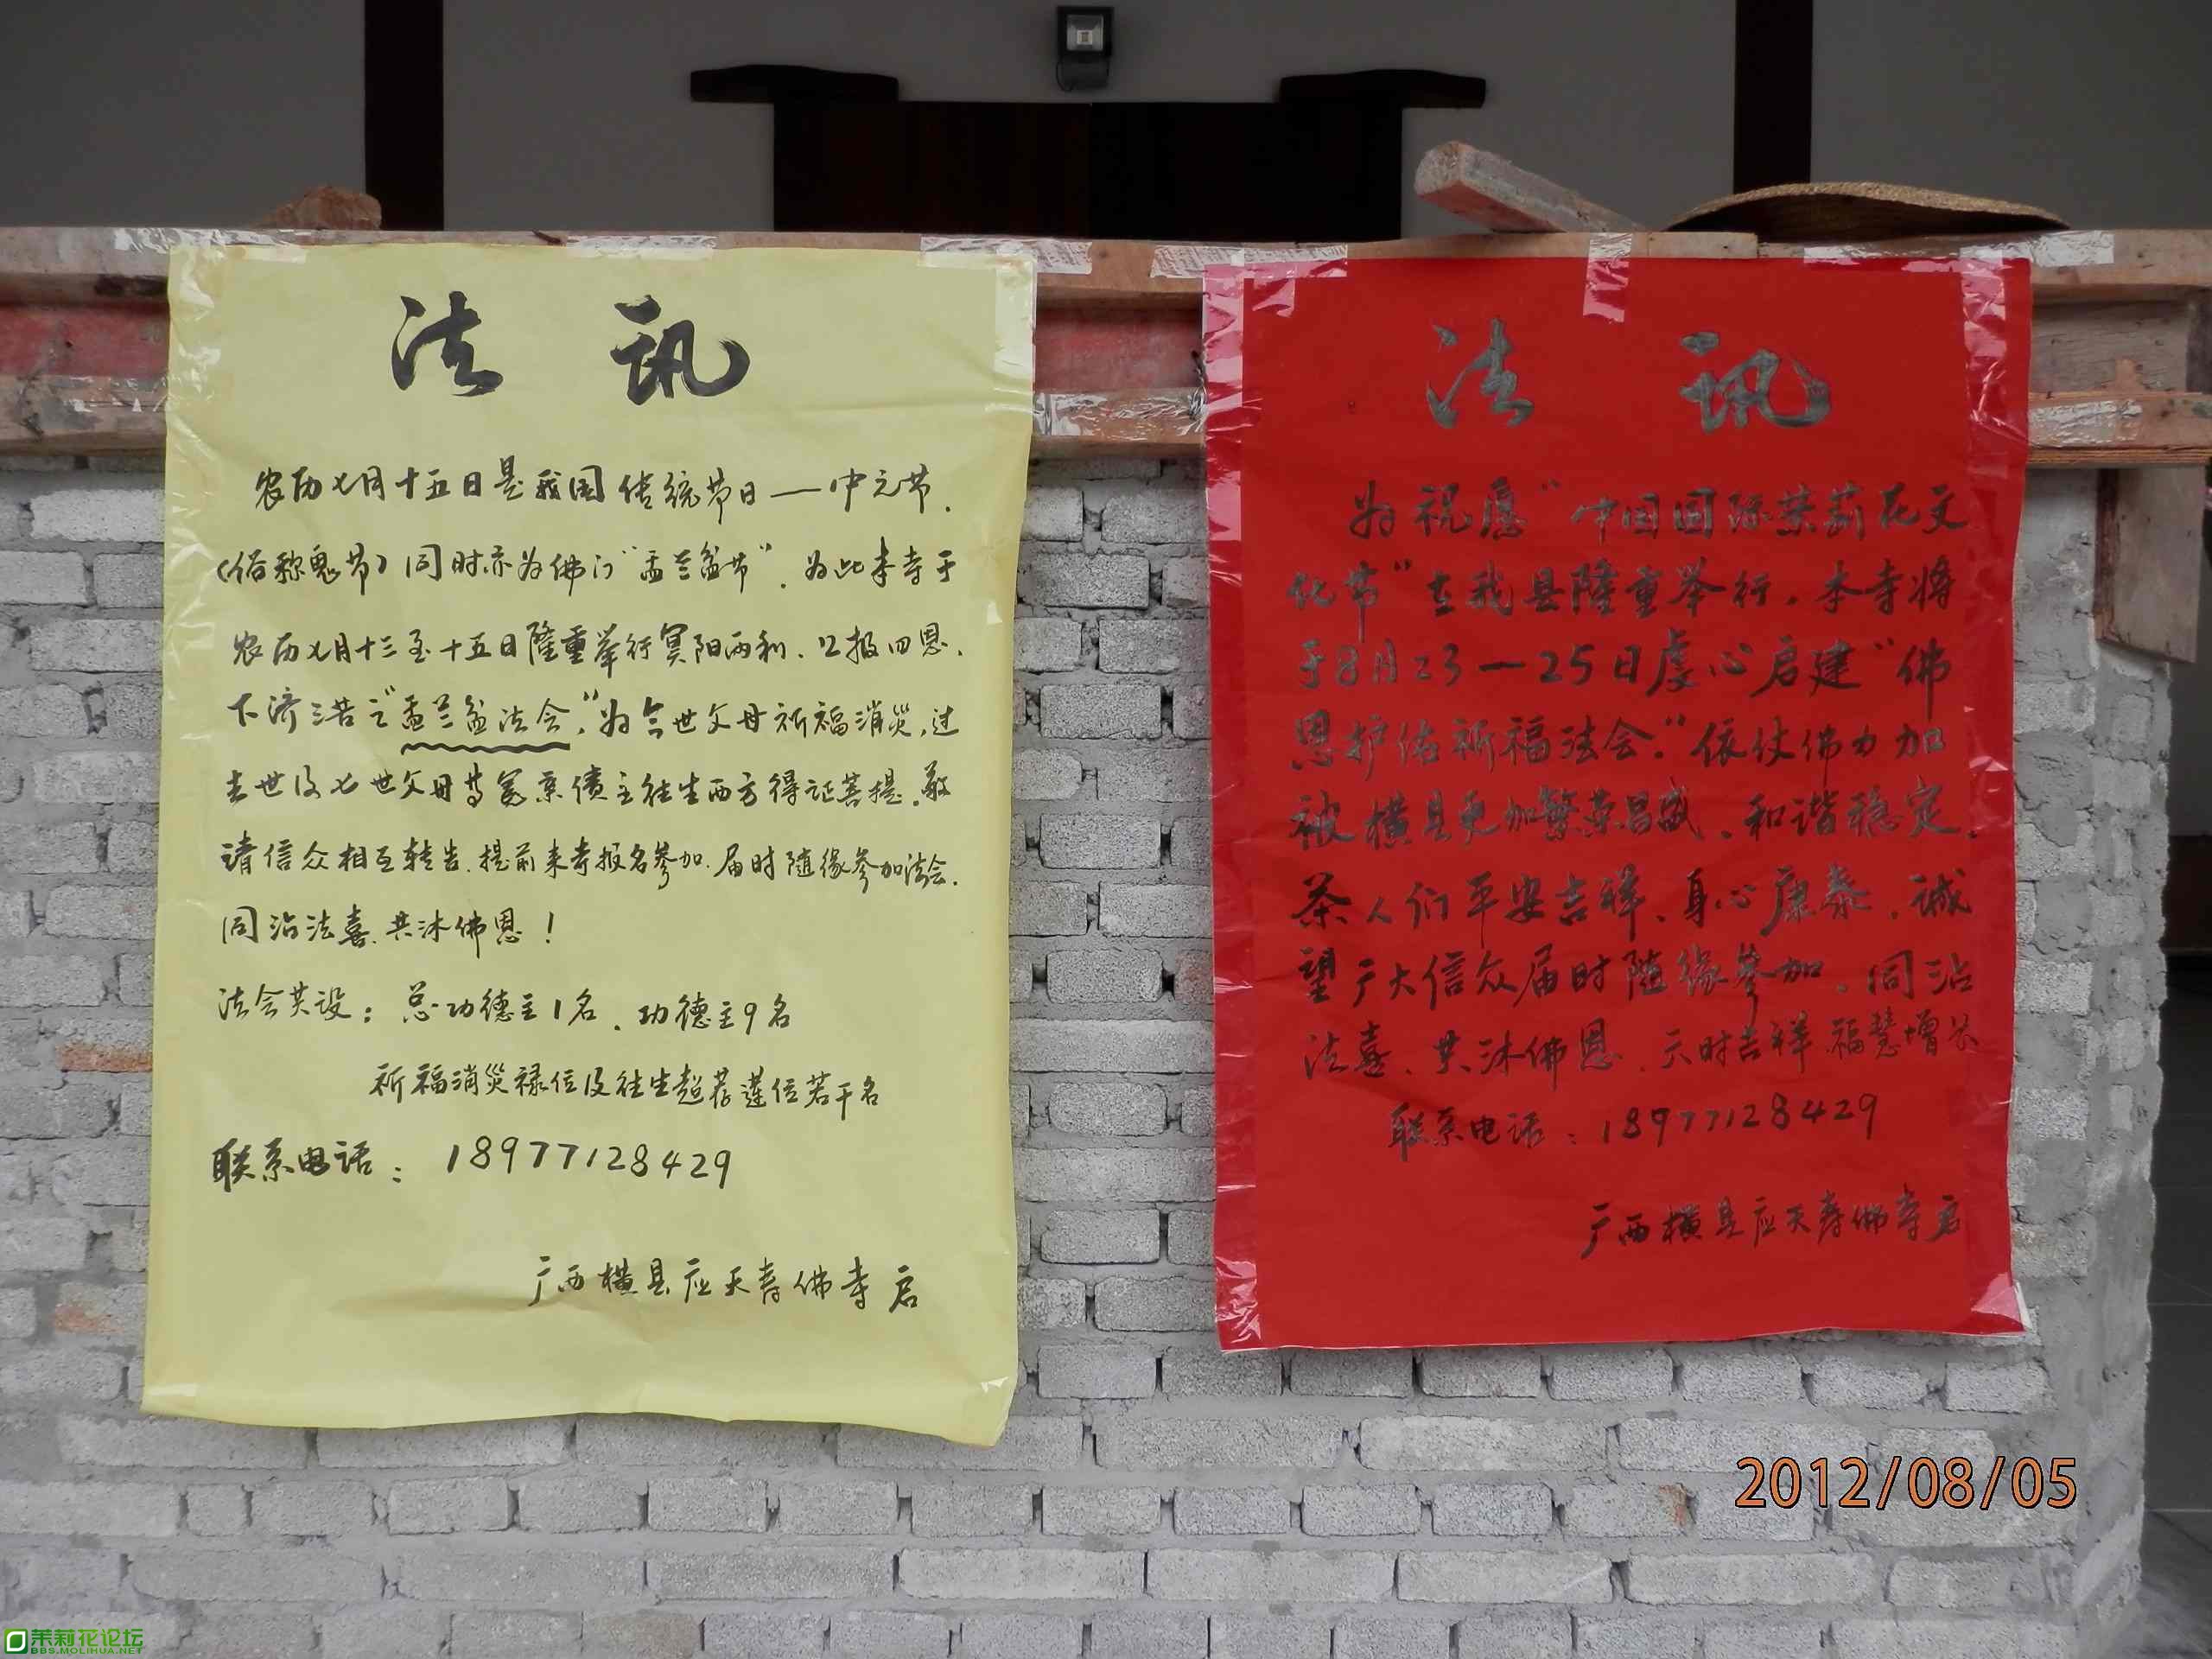 法讯
农历七月十五日是我国传统节日——中元节.
(俗称鬼节)同时亦为佛门"孟兰盆节".为此本寺于
农历七月十三至十五日隆重举行冥阳两利、上报四恩、
下济三苦之"孟兰盆法会,"为今世父母祈福消灾,过
去世及七世父母等冤亲债主往生西方得证菩提.敬
请信众相互转告.提前来寺报名参加.届时随缘参加法会.
同沾法喜、共沐佛恩!
法会共设:总功德主1名、功德主9名
祈福消灾禄位及往生超荐莲位若干名
联系电话:18977128429
广西横县应天寿佛寺启
法讯
为祝愿"中国国际茉莉花文
化节"在我县隆重举行.本寺将
于8月23—25日虔心启建"佛
恩护佑祈福法会."依仗佛力加
被横县更加繁荣昌盛、和谐稳定.
茶人们平安吉祥、身心康泰.诚
望广大信众届时随缘参加.同沾
法喜、共沐佛恩.天时吉祥.福慧增长
联系电话:18977128429
广西横县应天寿佛寺启
2012/08/05
茉莉花论坛
BBS.MOLIHUA.NET